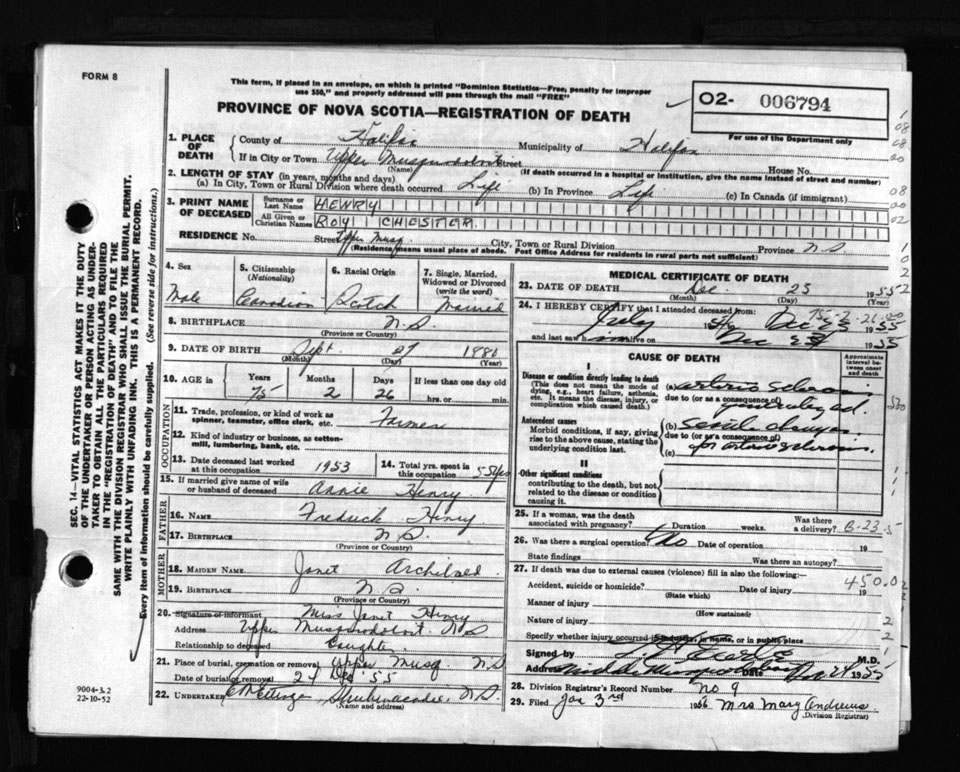 FORM 8
This form, if placed in an envelope, on which is printed "Dominion Statistics—Free, penalty for improper
use $50," and properly addressed will pass through the mail "FREE"
PROVINCE OF NOVA SCOTIA—REGISTRATION OF DEATH
O2- 006794
For use of the Department only
1. PLACE OF DEATH
County of Halifax Municipality of Halifax
If in City or Town Upper Musquodoboit Street House No.
(Name) (If death occurred in a hospital or institution, give the name instead of street and number)
2. LENGTH OF STAY (in years, months and days)
(a) In City, Town or Rural Division where death occurred Life (b) In Province Life (c) In Canada (if immigrant)
3. PRINT NAME OF DECEASED
Surname or Last Name HENRY
All Given or Christian Names ROY CHESTER
RESIDENCE No. Street Upper Musq. City, Town or Rural Division Province N S
(Residence means usual place of abode. Post Office Address for residents in rural parts not sufficient)
4. Sex
Male
5. Citizenship (Nationality)
Canadian
6. Racial Origin
Scotch
7. Single, Married, Widowed or Divorced (write the word)
Married
8. BIRTHPLACE N.S.
(Province or Country)
9. DATE OF BIRTH Sept 27 1880
(Month) (Day) (Year)
10. AGE in Years Months Days If less than one day old
75 2 26 hrs. or min.
OCCUPATION
11. Trade, profession, or kind of work as spinner, teamster, office clerk, etc. Farmer
12. Kind of industry or business, as cotten-mill, lumbering, bank, etc.
13. Date deceased last worked at this occupation 1953
14. Total yrs. spent in this occupation 55 yrs
15. If married give name of wife or husband of deceased Annie Henry
FATHER
16. NAME Fredrick Henry
17. BIRTHPLACE N S
(Province or Country)
MOTHER
18. MAIDEN NAME Janet Archibald
19. BIRTHPLACE N S
(Province or Country)
20. Signature of informant Miss Janet Henry
Address Upper Musquodoboit N S
Relationship to deceased Daughter
21. Place of burial, cremation or removal Upper Musq. N S
Date of burial or removal Dec '55
22. UNDERTAKER Shubenacadie N S
(Name and address)
MEDICAL CERTIFICATE OF DEATH
23. DATE OF DEATH Dec 25 1955
(Month) (Day) (Year)
24. I HEREBY CERTIFY that I attended deceased from:
July Dec 25 1955
and last saw him alive on Dec 1955
CAUSE OF DEATH
Approximate interval between onset and death
I
Disease or condition directly leading to death
(This does not mean the mode of dying, e.g., heart failure, asthenia, etc. It means the disease, injury, or complication which caused death.)
(a)
due to (or as a consequence of)
generalized.
Antecedent causes
Morbid conditions, if any, giving rise to the above cause, stating the underlying condition last.
(b) Senile changes
due to (or as a consequence of)
(c)
II
Other significant conditions
contributing to the death, but not related to the disease or condition causing it.
25. If a woman, was the death associated with pregnancy? Duration weeks. Was there a delivery?
B-23-5
26. Was there a surgical operation? No Date of operation 19
State findings Was there an autopsy?
27. If death was due to external causes (violence) fill in also the following:—
450.0
Accident, suicide or homicide? Date of injury 19
(State which)
Manner of injury
(How sustained)
Nature of injury
Specify whether injury occurred in industry, in home, or in public place
Signed by M.D.
Address Date 1955
28. Division Registrar's Record Number No 9
29. Filed Jan 3rd 1956 Mrs Mary Andrews
(Division Registrar)
SEC. 14—VITAL STATISTICS ACT MAKES IT THE DUTY
OF THE UNDERTAKER OR PERSON ACTING AS UNDER-
TAKER TO OBTAIN ALL THE PARTICULARS REQUIRED
IN THE "REGISTRATION OF DEATH" AND TO FILE THE
SAME WITH THE DIVISION REGISTRAR WHO SHALL ISSUE THE BURIAL PERMIT.
WRITE PLAINLY WITH UNFADING INK. THIS IS A PERMANENT RECORD.
Every item of information should be carefully supplied. (See reverse side for instructions.)
9004-3.2
22-10-52